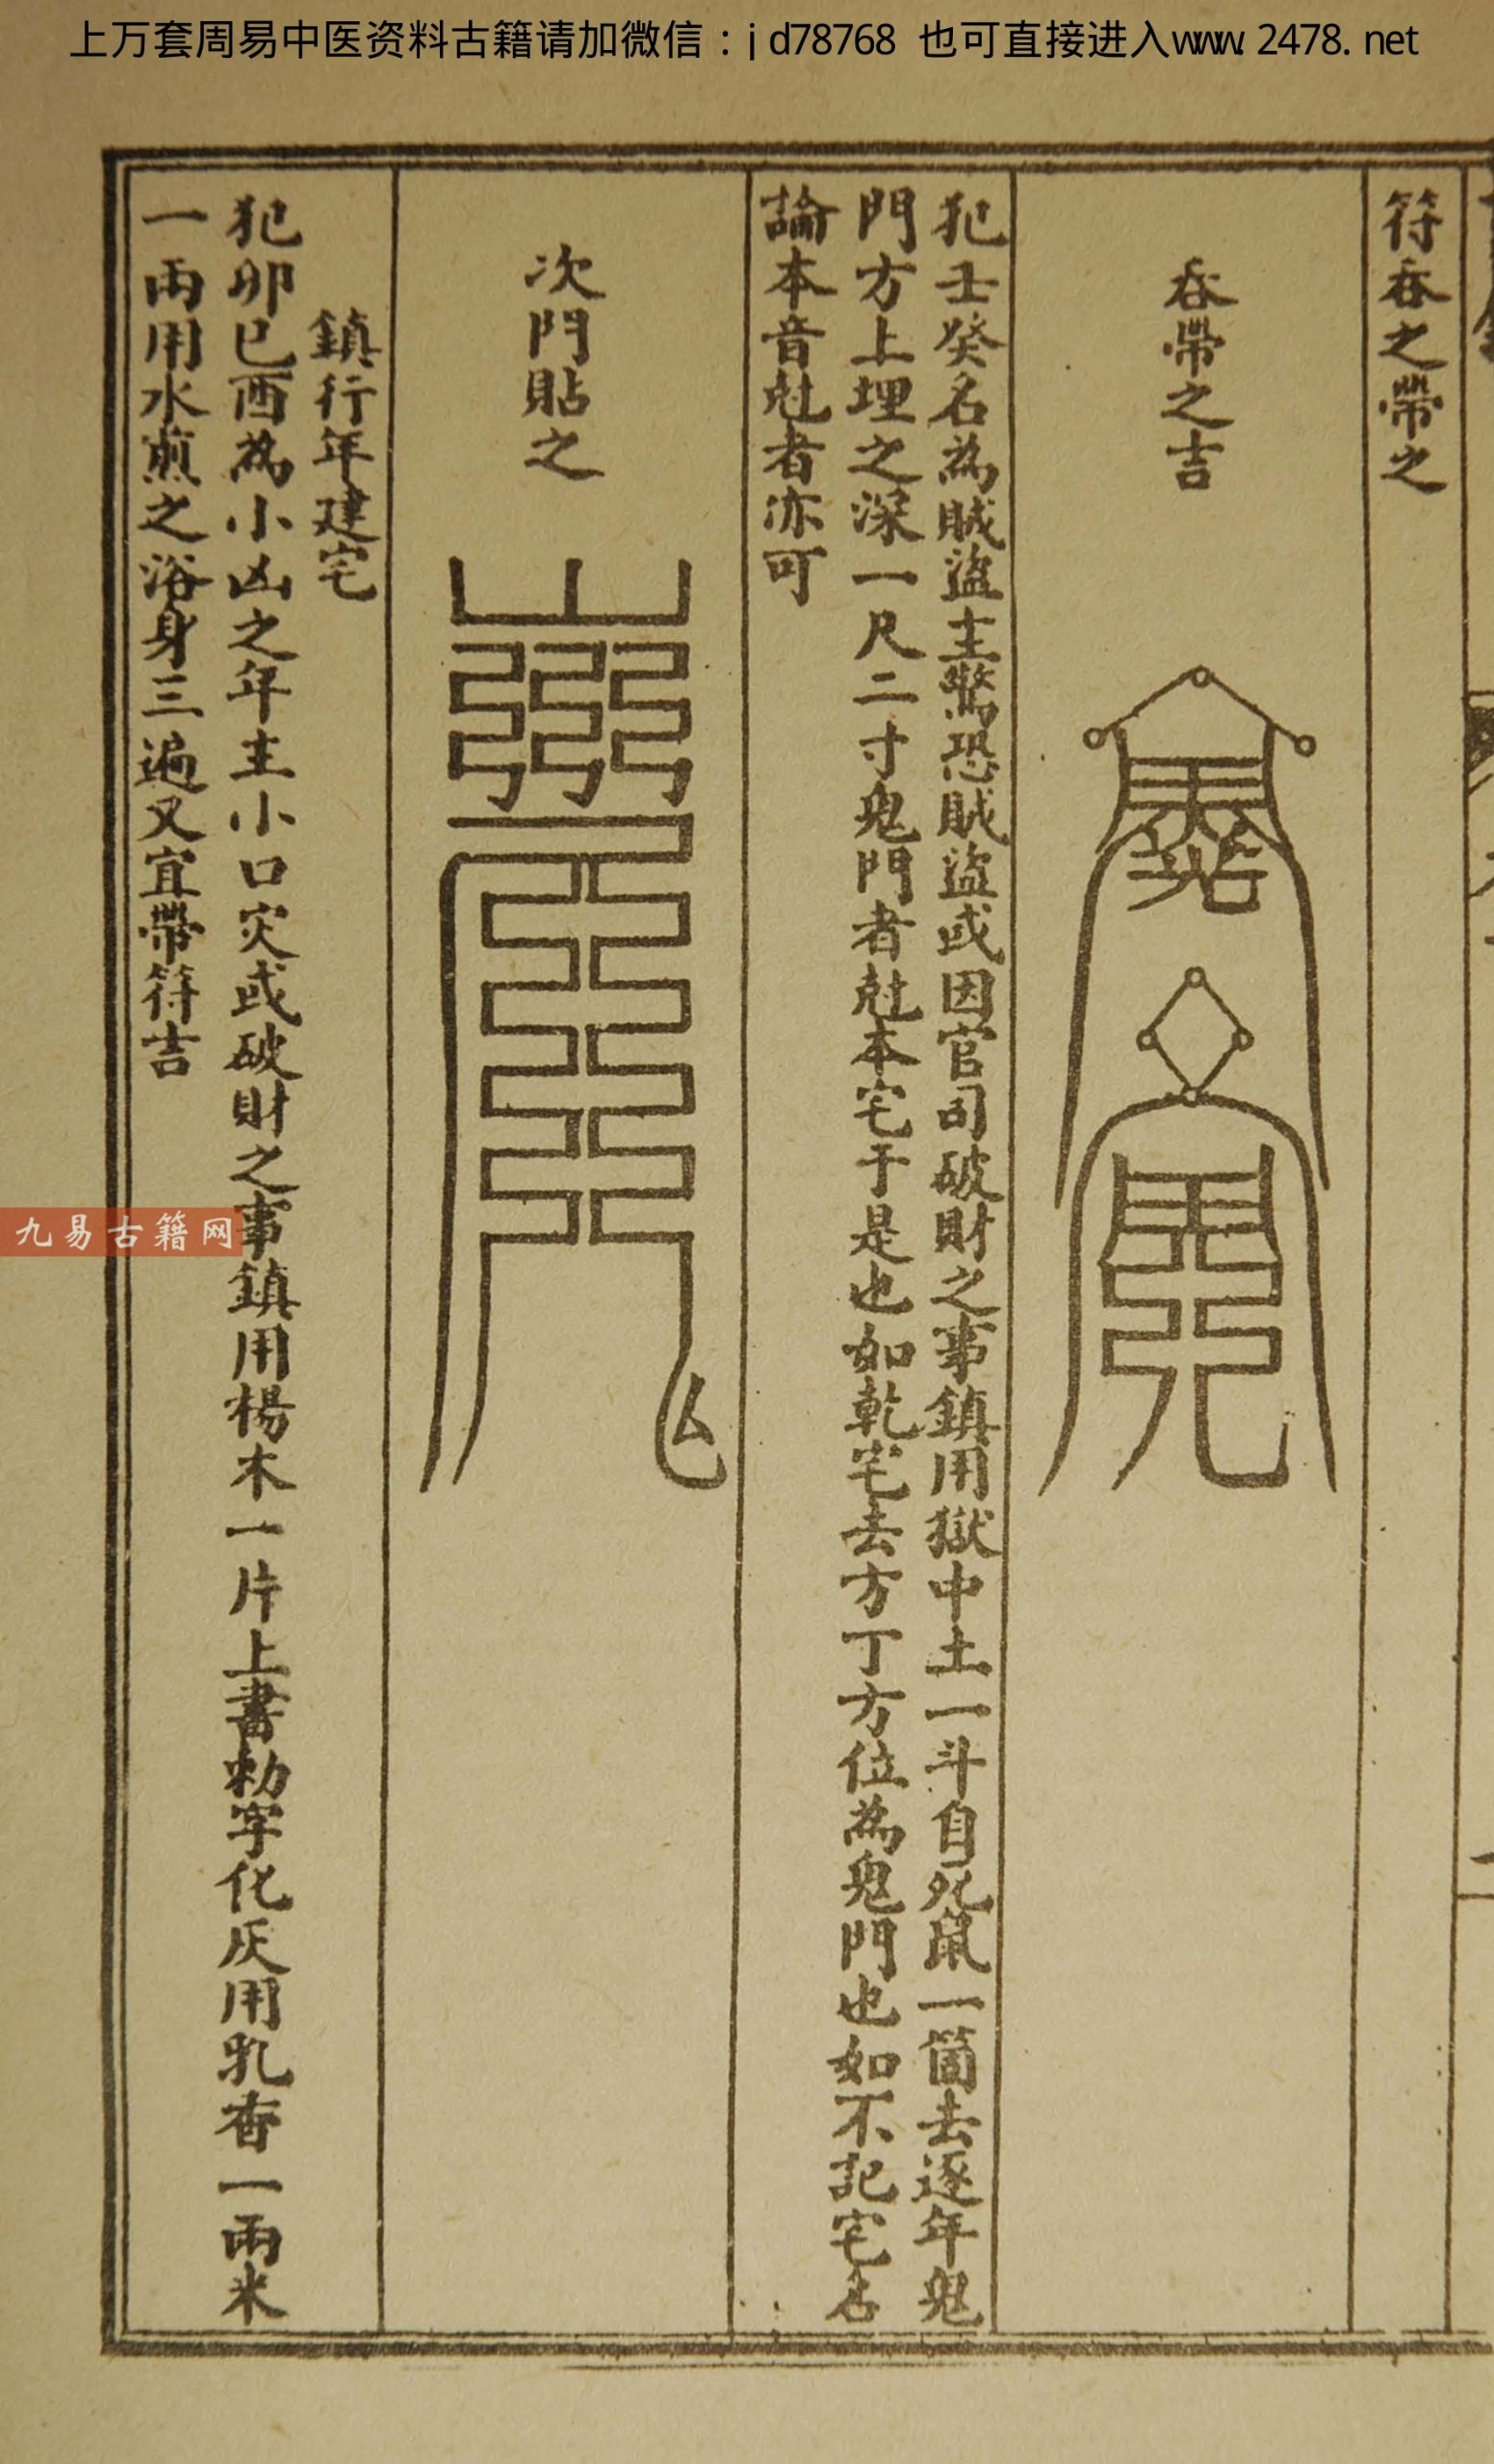 上万套周易中医资料古籍请加微信：jd78768 也可直接进入www.2478.net
符吞之帶之
吞帶之吉
犯壬癸名為賊盜主驚恐賊盜或因官司破財之事鎮用獄中土一斗自死鼠一箇去逐年鬼
門方上埋之深一尺二寸鬼門者尅本宅于是也如乾宅去方丁方位為鬼門也如不記宅名
論本音尅者亦可
次門貼之
鎮行年建宅
犯卯巳酉為小凶之年主小口灾或破財之事鎮用楊木一片上書勑字化灰用乳香一兩米
一兩用水煎之浴身三遍又宜帶符吉
九易古籍网